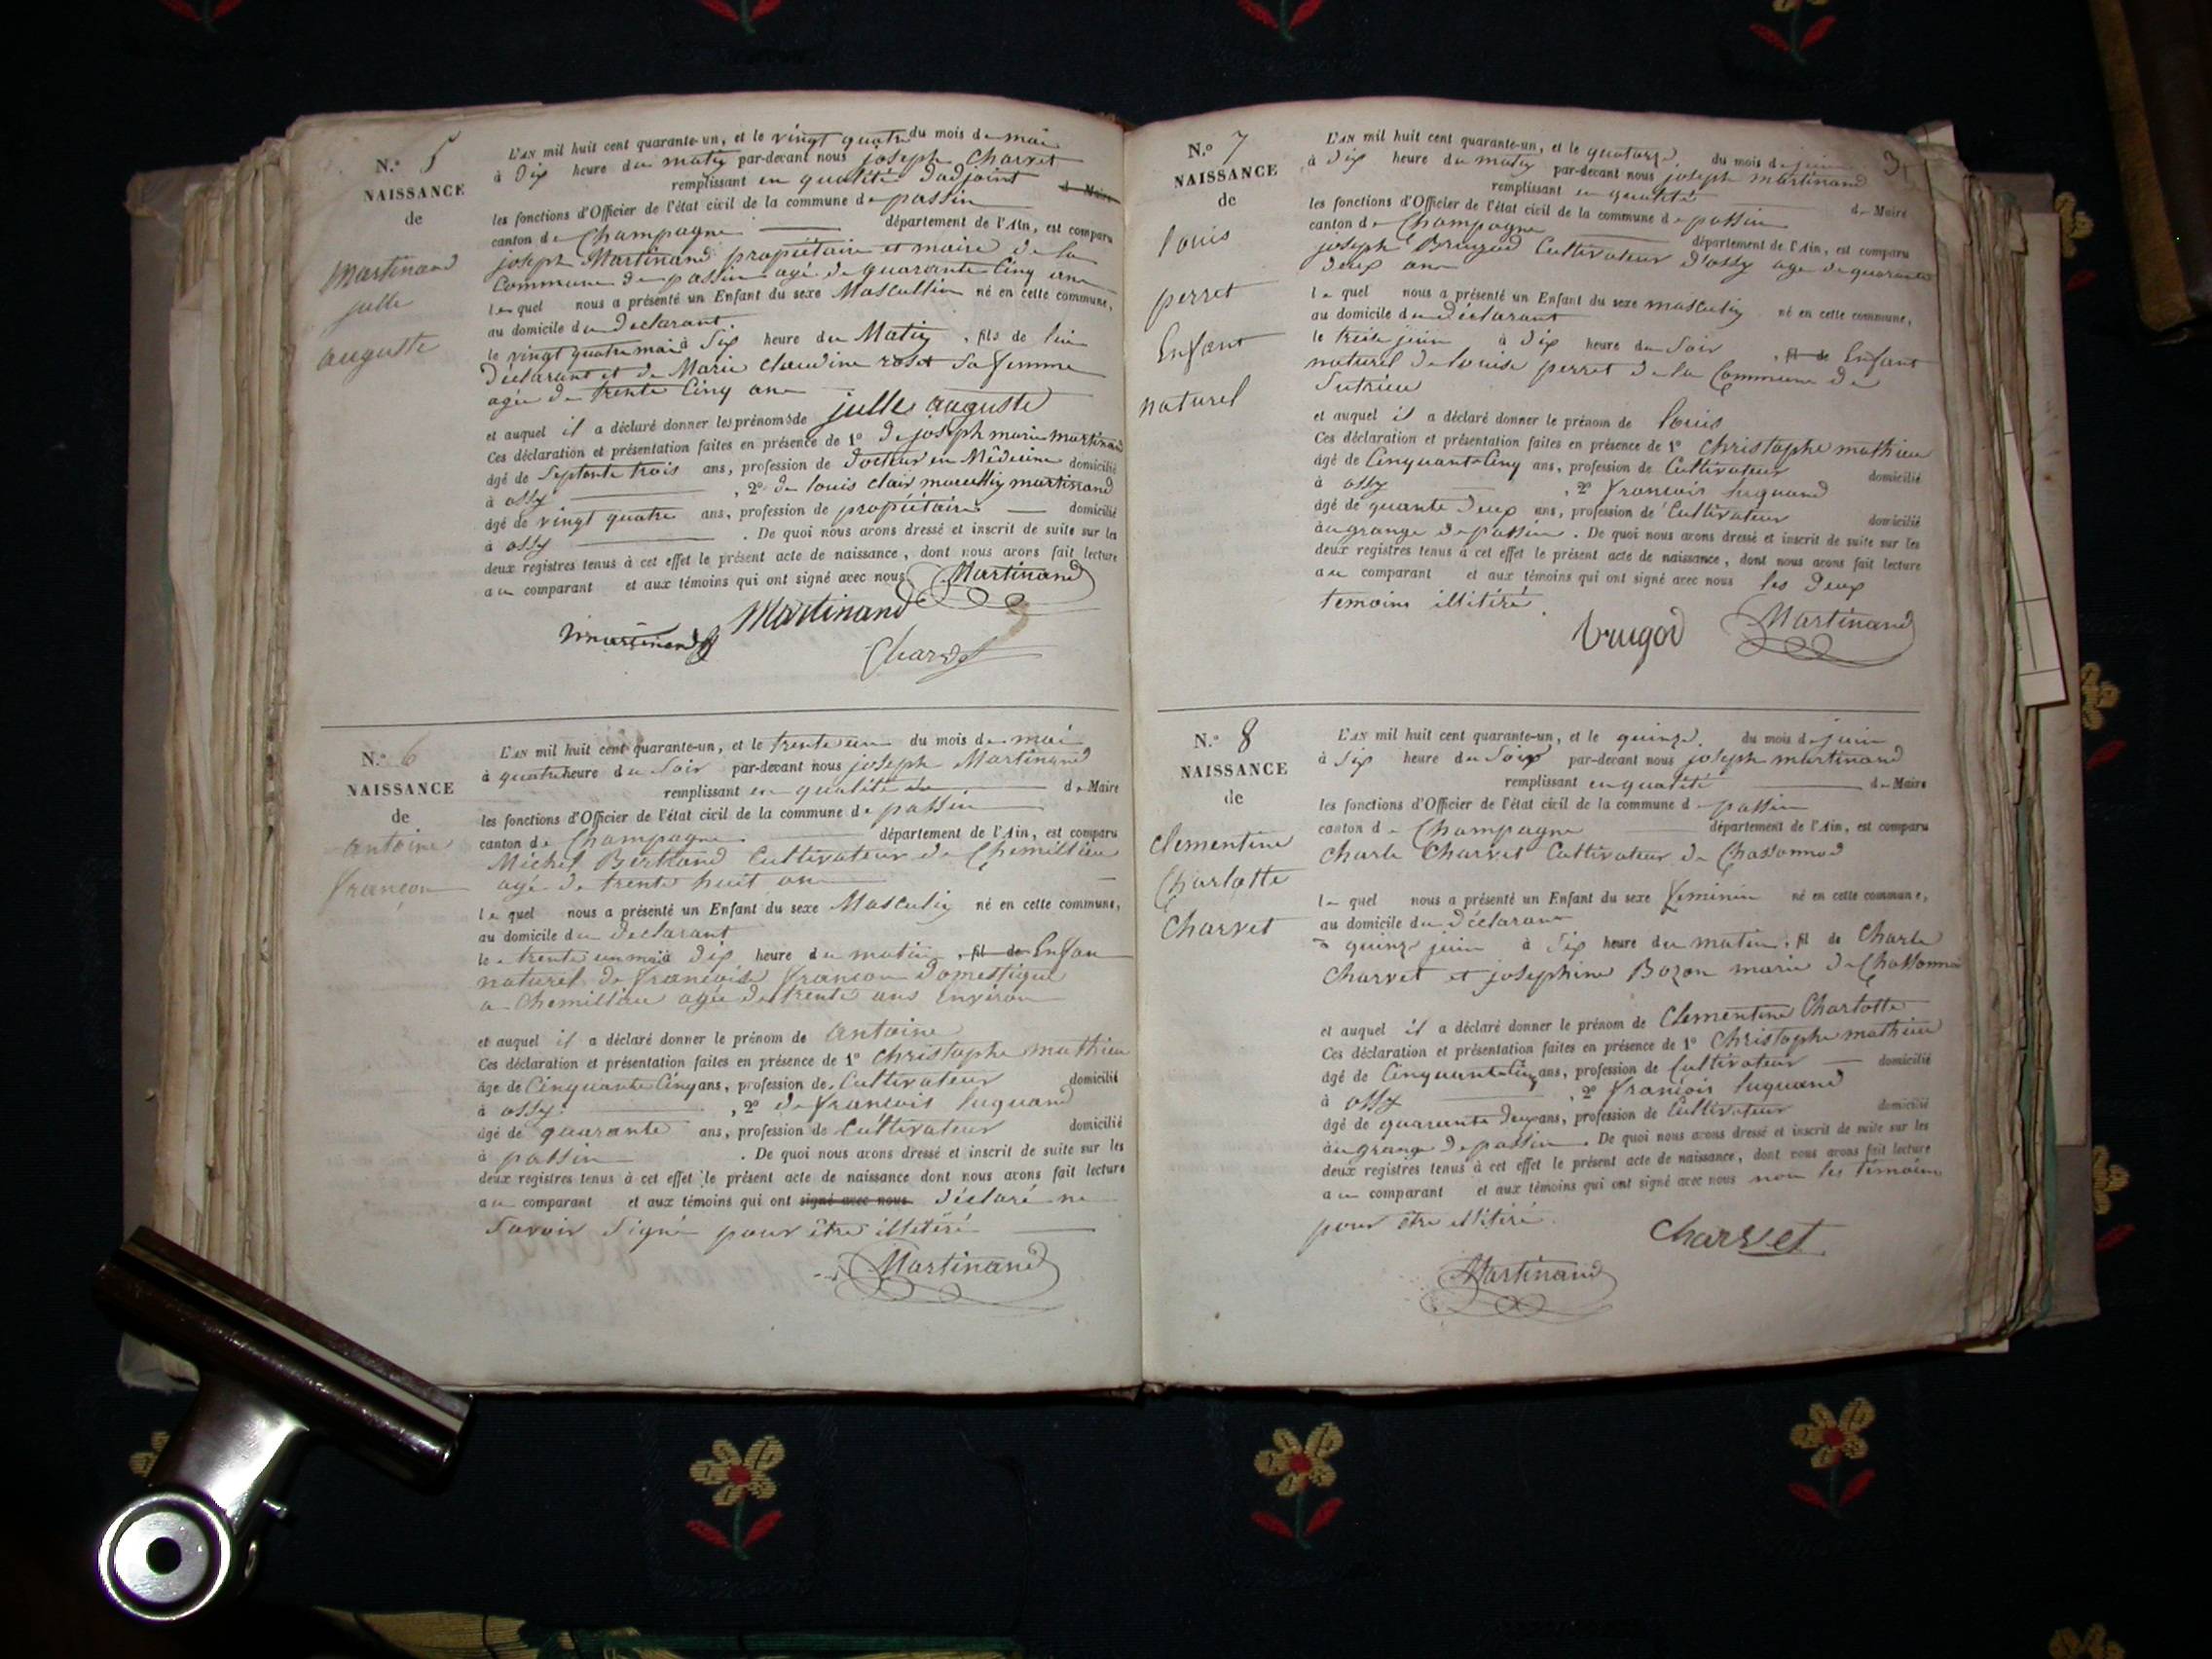 N.o 5
NAISSANCE
de
Martinand
julle
auguste
L'AN mil huit cent quarante-un, et le vingt quatre du mois de mai
à dix heure du matin par-devant nous joseph Charvet
remplissant en qualité d'adjoint de Maire
les fonctions d'Officier de l'état civil de la commune de passin
canton de Champagne département de l'Ain, est comparu
joseph Martinand propiétaire et maire de la
Commune de passin agé de quarante Cinq ans
lequel nous a présenté un Enfant du sexe Mascullin né en cette commune,
au domicile du declarant.
le vingt quatre mai à Six heure du Matin, fils de lui
déclarant et de Marie Claudine roset sa femme
agée de trente Cinq ans
et auquel il a déclaré donner les prénoms de julle auguste
Ces déclaration et présentation faites en présence de 1o de joseph marie martinand
âgé de Septante trois ans, profession de docteur en Médecine domicilié
à ossy, 2o de louis clair marcellin martinand
âgé de vingt quatre ans, profession de propiétaire domicilié
à ossy. De quoi nous avons dressé et inscrit de suite sur les
deux registres tenus à cet effet le présent acte de naissance, dont nous avons fait lecture
au comparant et aux témoins qui ont signé avec nous Martinand
Martinand
Charvet
N.o 6
NAISSANCE
de
antoine
françon
L'AN mil huit cent quarante-un, et le trente un du mois de mai
à quatre heure du Soir par-devant nous joseph Martinand
remplissant en qualité de Maire
les fonctions d'Officier de l'état civil de la commune de passin
canton de Champagne département de l'Ain, est comparu
Michel Bertrand Cultivateur de Chemillieu
agé de trente huit ans
lequel nous a présenté un Enfant du sexe Masculin né en cette commune,
au domicile du declarant
le trente un mai à dix heure du matin, fil de Enfan
naturel de françoise françon domestique
a Chemillieu agée de trente ans Environ
et auquel il a déclaré donner le prénom de antoine
Ces déclaration et présentation faites en présence de 1o Christophe mathieu
âge de Cinquante Cinq ans, profession de Cultivateur domicilié
à ossy, 2o de francois luquand
âgé de quarante ans, profession de Cultivateur domicilié
à passin. De quoi nous avons dressé et inscrit de suite sur les
deux registres tenus à cet effet le présent acte de naissance dont nous avons fait lecture
au comparant et aux témoins qui ont signé avec nous déclaré ne
Savoir Signé pour être illetéré
Martinand
N.o 7
NAISSANCE
de
louis
perret
Enfant
naturel
L'AN mil huit cent quarante-un, et le quatorze du mois de juin
à dix heure du matin par-devant nous joseph martinand
remplissant en qualité de Maire
les fonctions d'Officier de l'état civil de la commune de passin
canton de Champagne département de l'Ain, est comparu
joseph Cultivateur d'ossy age de quarante
deux ans
lequel nous a présenté un Enfant du sexe masculin né en cette commune,
au domicile du déclarant
le treize juin à dix heure du Soir, fil de Enfant
naturel de louise perret de la Commune de
Sutrieu
et auquel il a déclaré donner le prénom de louis
Ces déclaration et présentation faites en présence de 1o Christophe mathieu
âgé de Cinquante Cinq ans, profession de Cultivateur domicilié
à ossy, 2o francois luquand
âgé de quante deux ans, profession de Cultivateur domicilié
à la grange de passin. De quoi nous avons dressé et inscrit de suite sur les
deux registres tenus à cet effet le présent acte de naissance, dont nous avons fait lecture
au comparant et aux témoins qui ont signé avec nous les deux
temoins illitéré.
Martinand
N.o 8
NAISSANCE
de
Clementine
Charlotte
Charvet
L'AN mil huit cent quarante-un, et le quinze du mois de juin
à Six heure du Soir par-devant nous joseph martinand
remplissant en qualité de Maire
les fonctions d'Officier de l'état civil de la commune de passin
canton de Champagne département de l'Ain, est comparu
Charle Charvet Cultivateur de Chassonnod
lequel nous a présenté un Enfant du sexe feminin né en cette commune,
au domicile du déclarant
quinze juin à Six heure du matin, fil de Charle
Charvet et josephine Bozon marié de Chassonnod
et auquel il a déclaré donner le prénom de Clementine Charlotte
Ces déclaration et présentation faites en présence de 1o Christophe mathieu
âgé de Cinquante Cinq ans, profession de Cultivateur domicilié
à ossy, 2o françois luquand
âgé de quarante deux ans, profession de Cultivateur domicilié
à la grange de passin. De quoi nous avons dressé et inscrit de suite sur les
deux registres tenus à cet effet le présent acte de naissance, dont nous avons fait lecture
au comparant et aux témoins qui ont signé avec nous non les témoins
pour être illitéré.
Charvet
Martinand